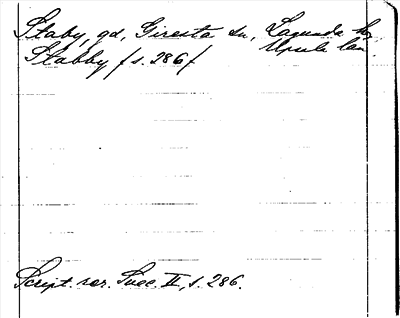 Staby, gd, Giresta sn, Lagunda hd,
Upsala län.
Stabby /s. 286/
Script. rer. Svec. II, s. 286.